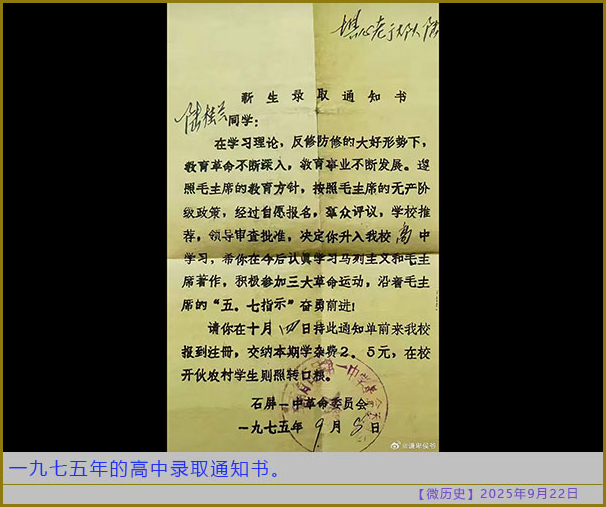 新生录取通知书
陆桂兰同学：
在学习理论，反修防修的大好形势下，
教育革命不断深入，教育事业不断发展。遵
照毛主席的教育方针，按照毛主席的无产阶
级政策，经过自愿报名，群众评议，学校推
荐，领导审查批准，决定你升入我校高中
学习，希你在今后认真学习马列主义和毛主
席著作，积极参加三大革命运动，沿着毛主
席的“五。七指示”奋勇前进！
请你在十月 四日持此通知单前来我校
报到注册，交纳本期学杂费2。5元，在校
开伙农村学生则照转口粮。
石屏一中革命委员会
一九七五年9月 日
一九七五年的高中录取通知书。
【微历史】2025年9月22日